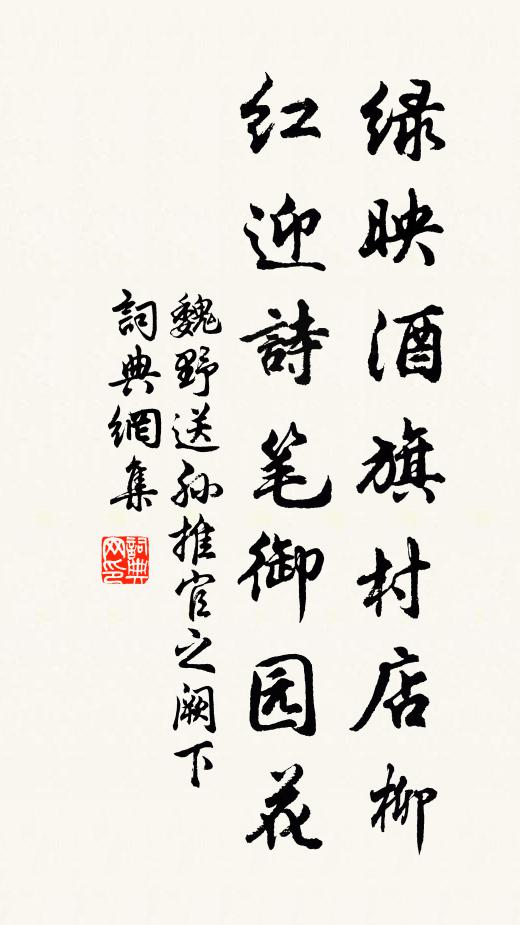 绿映酒旗村店柳
红迎詩笔御园花
魏野送孙推官之阙下
詞典網集
詞典
网印